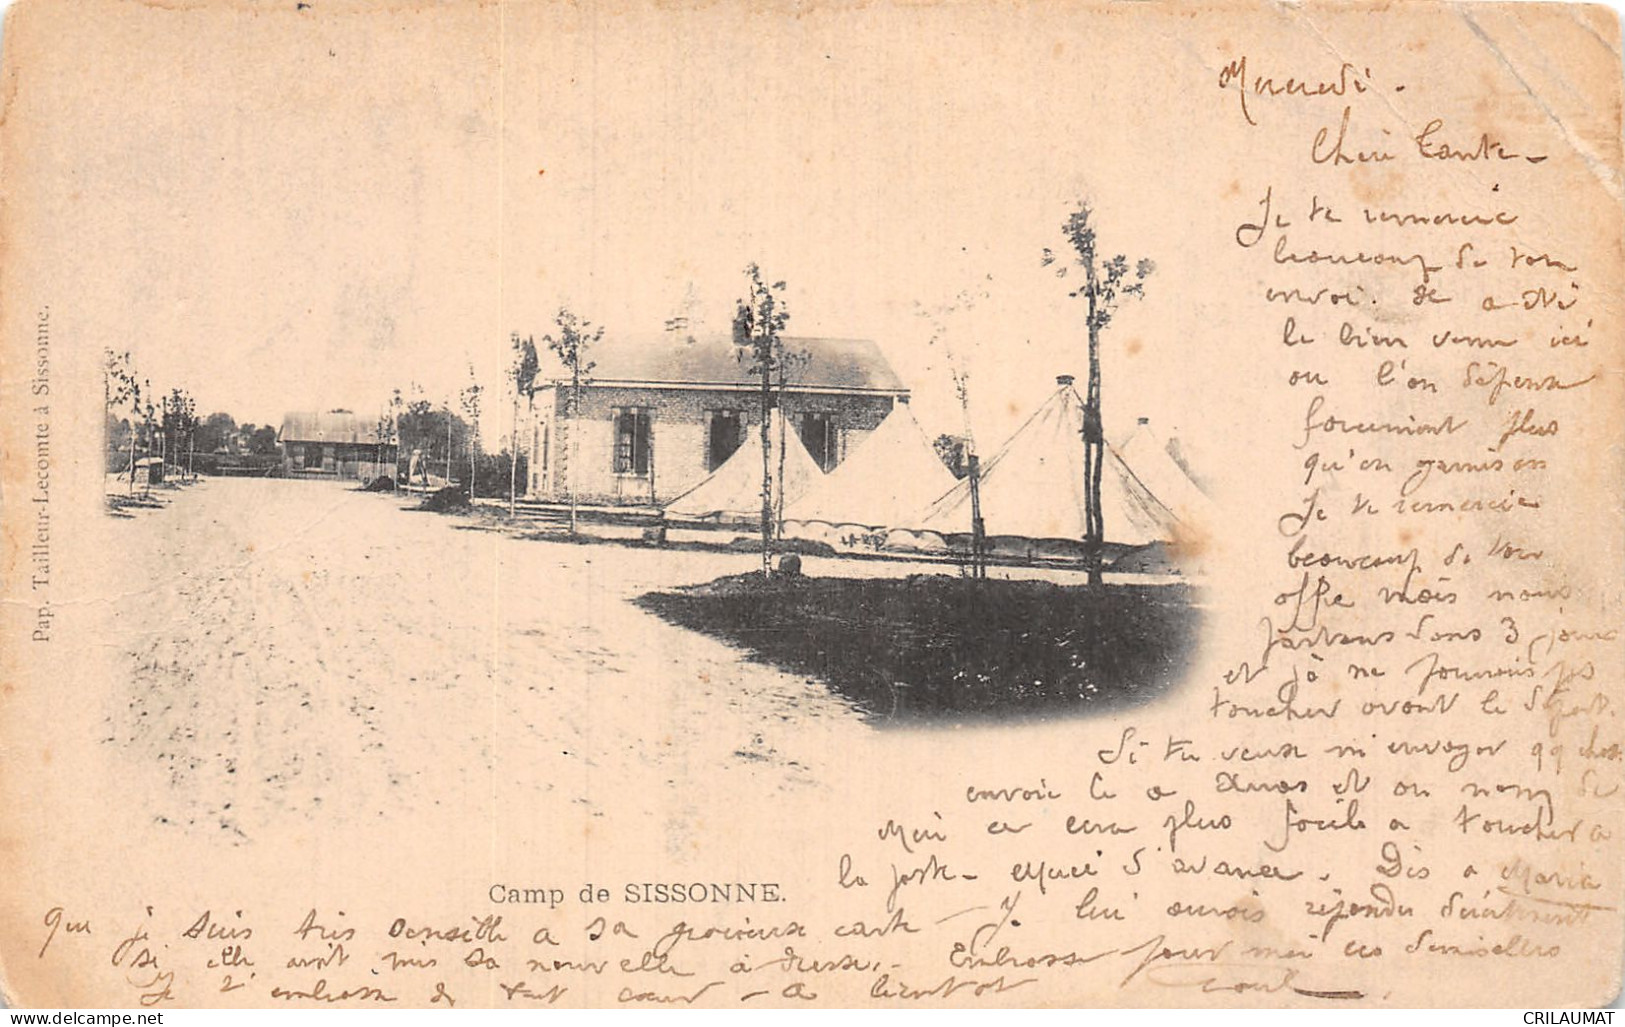 Mercredi -
Chère Tante -
Je te remercie
beaucoup de ton
envoi. il a été
le bien venu ici
ou l'on dépense
forcément plus
qu'en garnison
Je te remercie
beaucoup de ton
offre mais nous
partons dans 3 jours
et je ne pouvais pas
toucher avant le départ.
Si tu veux m'envoyer qq chose
envoie le a et au nom de
ce sera plus facile a toucher a
la poste - Merci d'avance. Dis a Maria
que je suis très sensible a sa gracieuse carte - Je lui aurais répondu directement
si elle avait mis sa nouvelle adresse. - Embrasse pour moi ces demoiselles
Je t'embrasse de tout cœur - a bientôt
Camp de SISSONNE.
Pap. Tailleur-Lecomte à Sissonne.
delcampe.net
CRILAUMAT